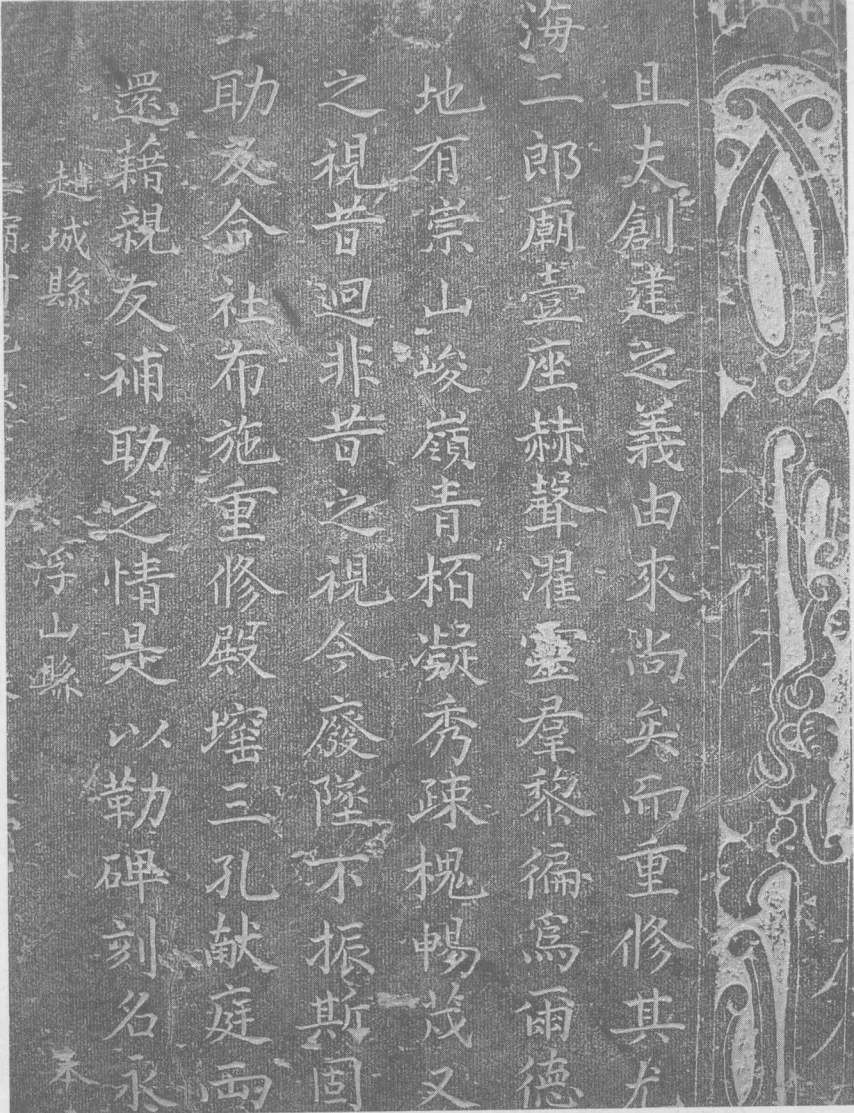 且夫創建之義由來尚矣而重修其尤
海二郎廟壹座赫聲濯靈羣黎徧爲爾德
地有崇山峻嶺青栢凝秀疎槐暢茂又
之視昔迥非昔之視今廢墜不振斯固
助叐合社布施重修殿窰三孔献庭両
還藉親友補助之情是以勒碑刻名永
趙城縣 浮山縣 本